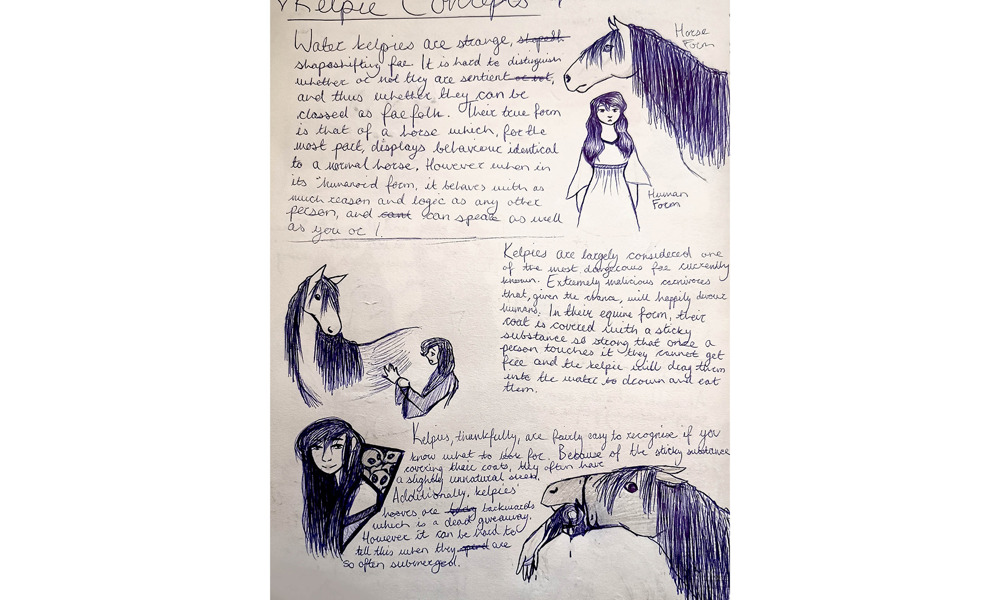 Kelpie Concepts
Water kelpies are strange, shapesh.
shapeshifting fae. It is hard to distinguish
whether or not they are sentient or not,
and thus whether they can be
classed as faefolk. Their true form
is that of a horse which, for the
most part, displays behaviour identical
to a normal horse. However when in
its "humanoid form, it behaves with as
much reason and logic as any other
person, and cant can speak as well
as you or I.
Horse
Form
Human
Form
Kelpies are largely considered one
of the most dangerous fae currently
known. Extremely malicious carnivores
that, given the chance, will happily devour
humans. In their equine form, their
coat is covered with a sticky
substance so strong that once a
person touches it they cannot get
free and the kelpie will drag them
into the water to drown and eat
them.
Kelpies, thankfully, are fairly easy to recognise if you
know what to look for. Because of the sticky substance
covering their coats, they often have
a slightly unnatural sheen.
Additionally, kelpies'
hooves are backwards
which is a dead giveaway.
However it can be hard to
tell this when they spend are
so often submerged.